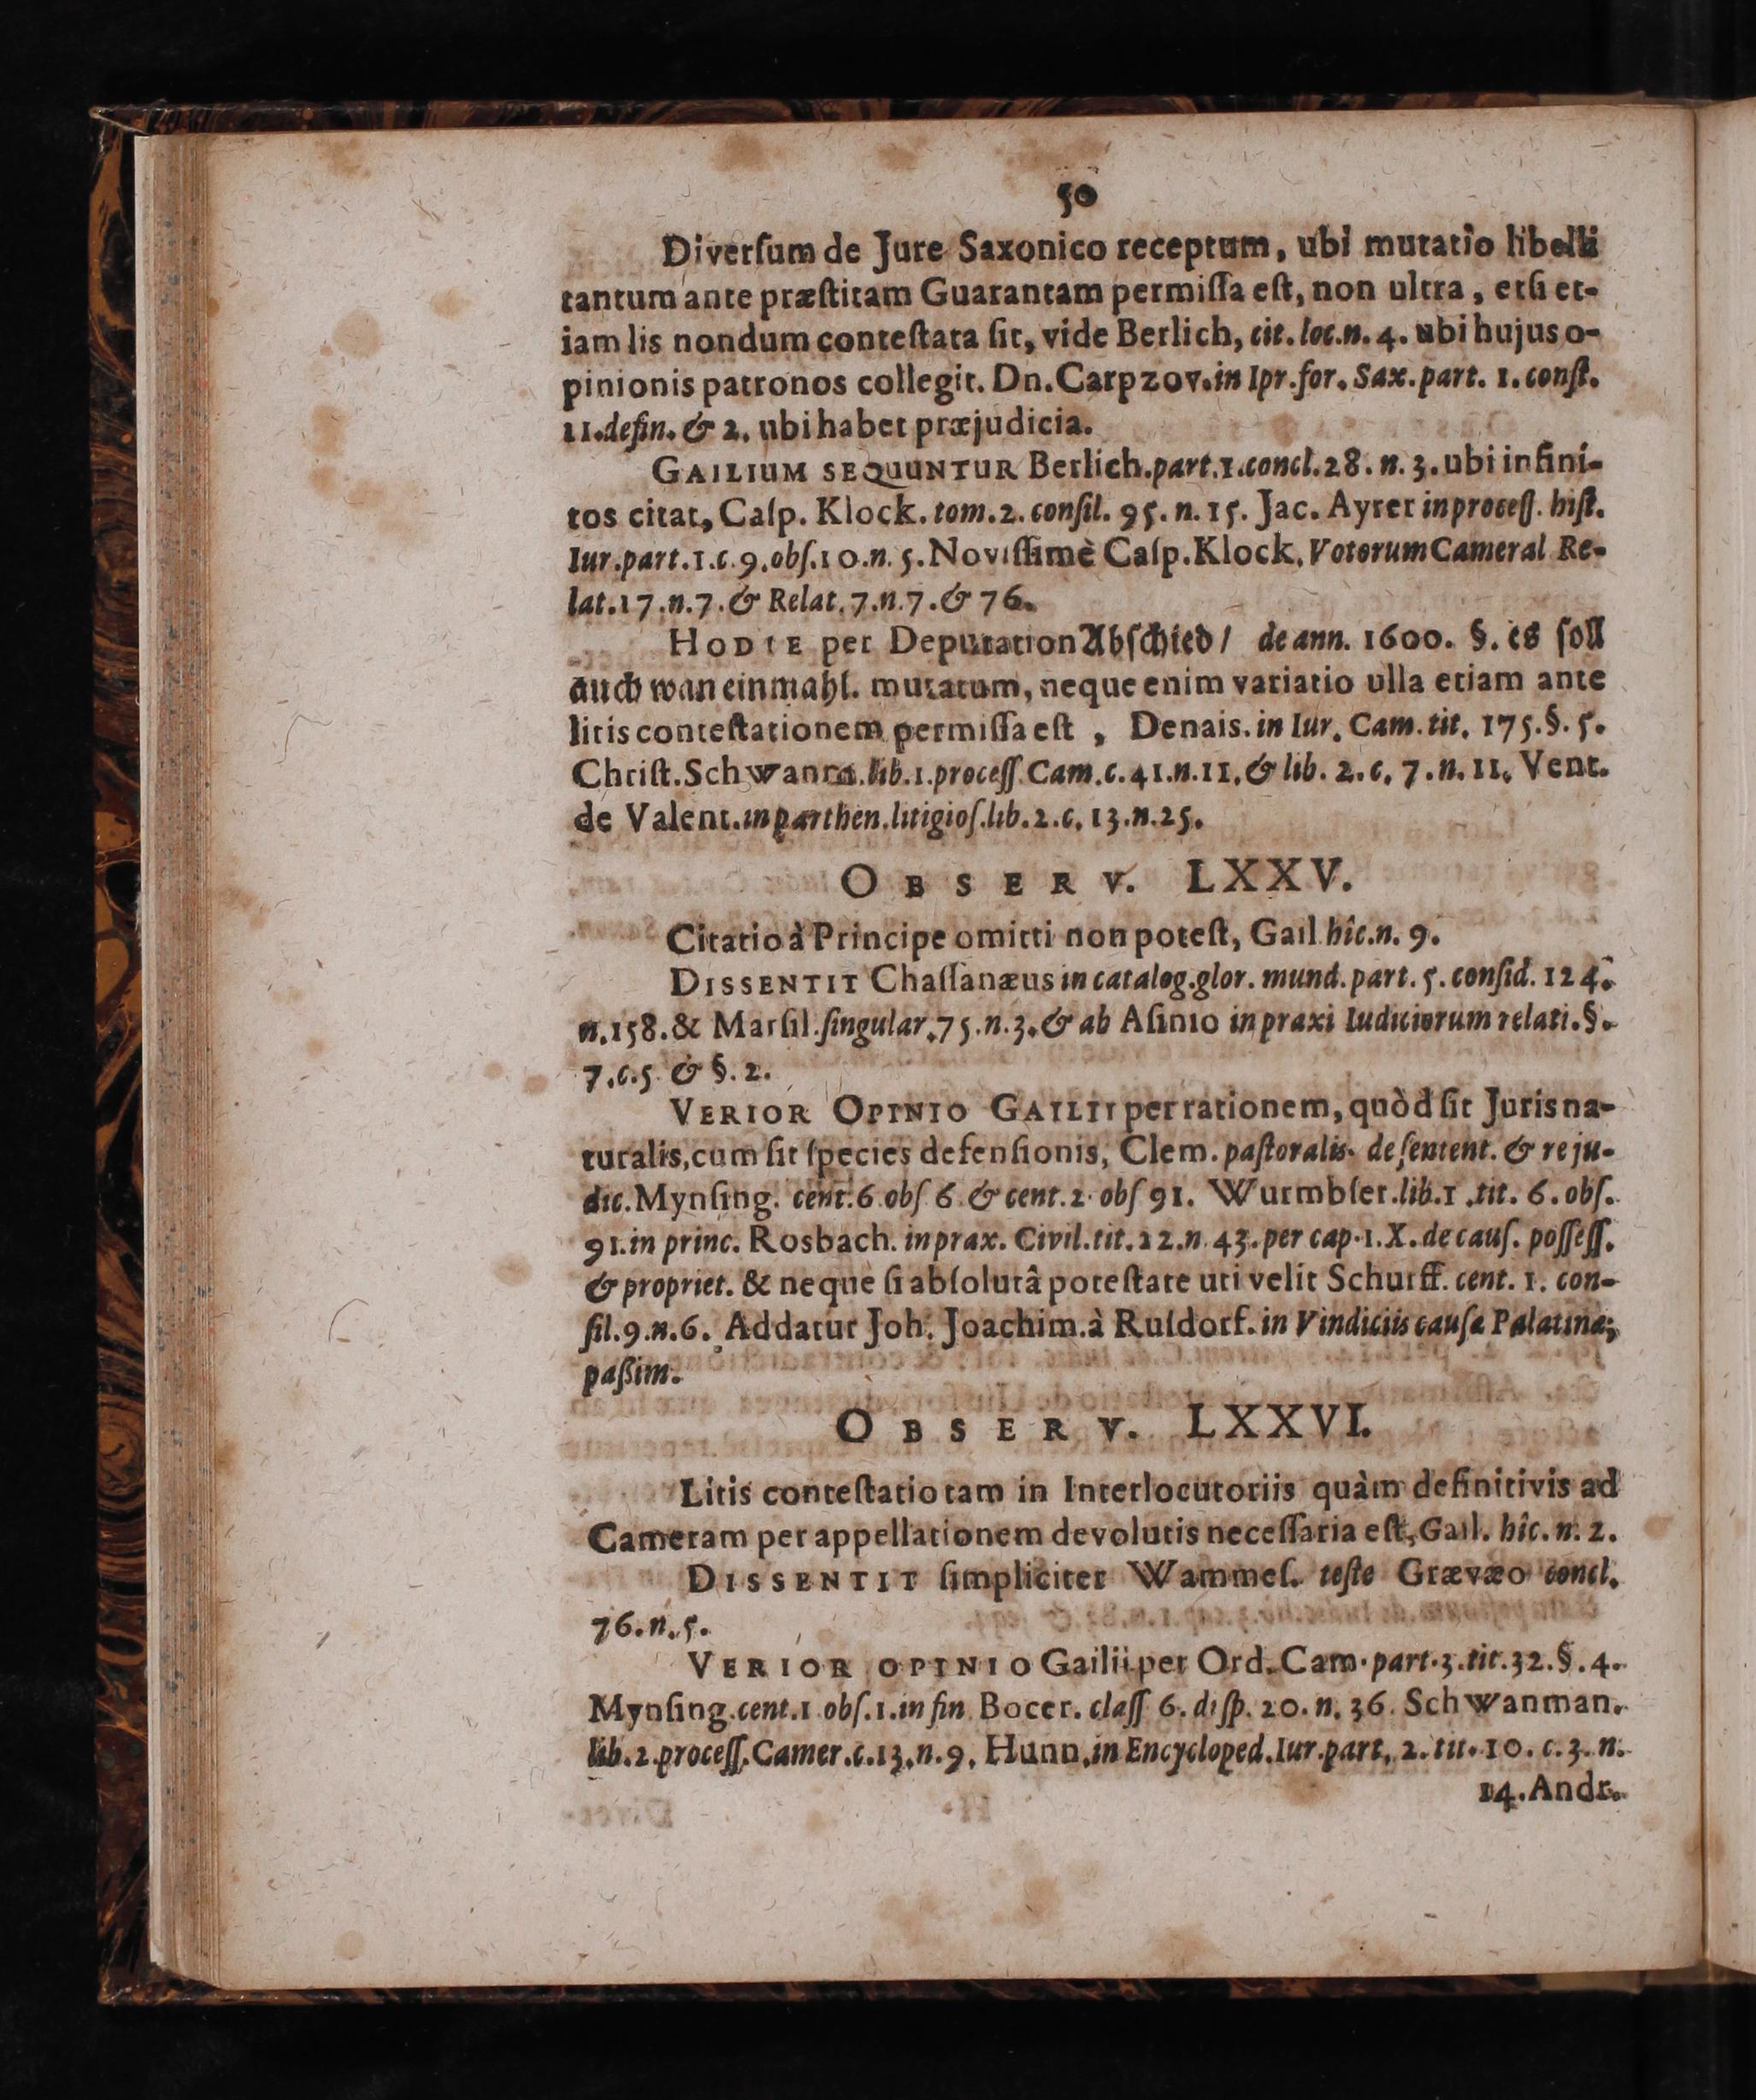 50
Diverſum de Jure Saxonico receptum, ubi mutatio libelli
tantum ante præſtitam Guarantam permiſſa eſt, non ultra, etſi et-
iam lis nondum conteſtata ſit, vide Berlich, cit. loc. n. 4. ubi hujus o-
pinionis patronos collegit. Dn. Carpzov. in Ipr. for. Sax. part. 1. conſt.
11. defin. & 2. ubi habet præjudicia.
GAILIUM SEQUUNTUR Berlich. part. 1. concl. 28. n. 3. ubi infini-
tos citat, Caſp. Klock. tom. 2. conſil. 95. n. 15. Jac. Ayrer in proceſſ. hiſt.
Iur. part. 1. c. 9. obſ. 10. n. 5. Noviſſimè Caſp. Klock, Votorum Cameral Re-
lat. 17. n. 7. & Relat. 7. n. 7. & 76.
HODIE per Deputation Abſchied / de ann. 1600. §. es ſoll
auch wan einmahl. mutatum, neque enim variatio ulla etiam ante
litis conteſtationem permiſſa eſt, Denais. in Iur. Cam. tit. 175. §. 5.
Chriſt. Schwanm. lib. 1. proceſſ. Cam. c. 41. n. 11. & lib. 2. c. 7. n. 11. Vent.
de Valent. in parthen. litigioſ. lib. 2. c. 13. n. 25.
OBSERV. LXXV.
Citatio à Principe omitti non poteſt, Gail hîc. n. 9.
DISSENTIT Chaſſanæus in catalog. glor. mund. part. 5. conſid. 124.
n. 158. & Marſil. ſingular. 75. n. 3. & ab Aſinio in praxi Iudiciorum relati. §.
7. c. 5 & §. 2.
VERIOR OPINIO GAILII per rationem, quòd ſit Juris na-
turalis, cum ſit ſpecies defenſionis, Clem. paſtoralis. de ſentent. & re ju-
dic. Mynſing. cent. 6 obſ 6 & cent. 2. obſ 91. Wurmbſer. lib. 1. tit. 6. obſ.
91. in princ. Rosbach. in prax. Civil. tit. 22. n. 43. per cap. 1. X. de cauſ. poſſeſſ.
& propriet. & neque ſi abſolutâ poteſtate uti velit Schurff. cent. 1. con-
ſil. 9. n. 6. Addatur Joh. Joachim. à Ruſdorf. in Vindiciis cauſæ Palatinæ,
paßim.
OBSERV. LXXVI.
Litis conteſtatio tam in Interlocutoriis quàm definitivis ad
Cameram per appellationem devolutis neceſſaria eſt, Gail. hîc. n. 2.
DISSENTIT ſimpliciter Wammeſ. teſte Grævæo concl.
76. n. 5.
VERIOR OPINIO Gailii per Ord. Cam. part. 3. tit. 32. §. 4.
Mynſing. cent. 1 obſ. 1. in fin Bocer. claſſ 6. diſp. 20. n. 36. Schwanman.
lib. 2. proceſſ. Camer. c. 13. n. 9. Hunn. in Encycloped. Iur. part. 2. tit. 10. c. 3. n.
14. Andr.